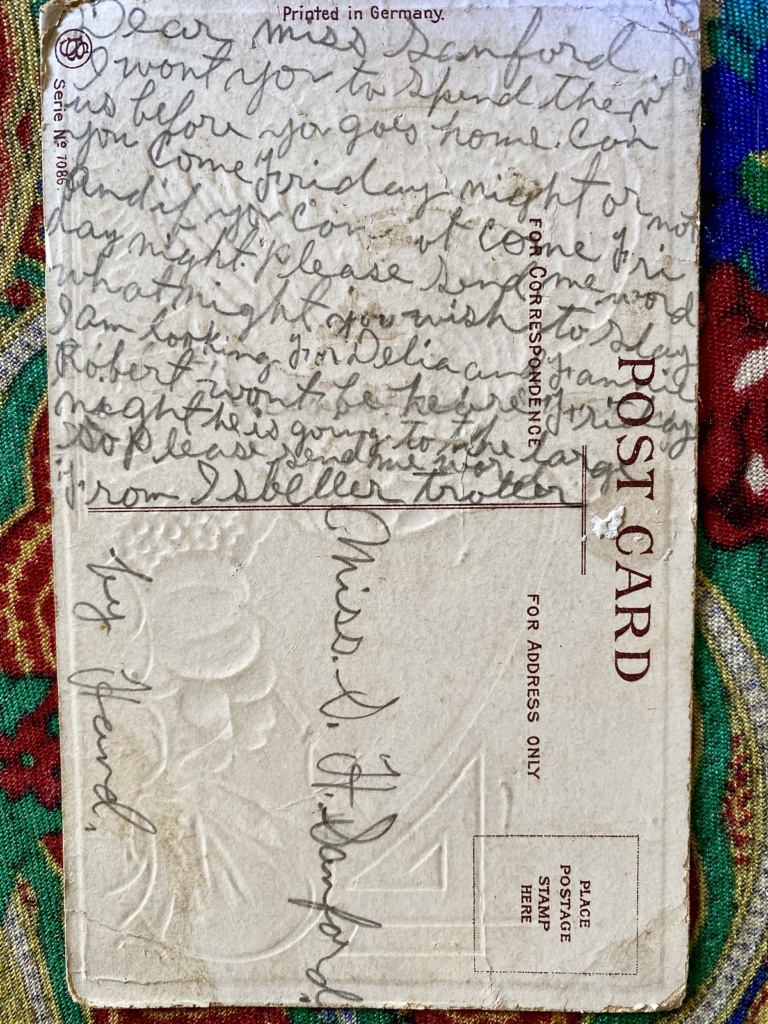 Printed in Germany.
Serie No 7086.
Dear miss Sanford
I wont you to spend the n
us before you goes home. Can
you Come Friday night or not
And if you Can ut Come Fri
day night. Please send me word
what night you wish to stay
I am looking for Delia and
Robert wont be heare Friday
night he is going to the
So Please send me word
From Isbeller trotter
POST CARD
FOR CORRESPONDENCE
FOR ADDRESS ONLY
PLACE
POSTAGE
STAMP
HERE
Miss. S. H. Sanford.
by Hand.